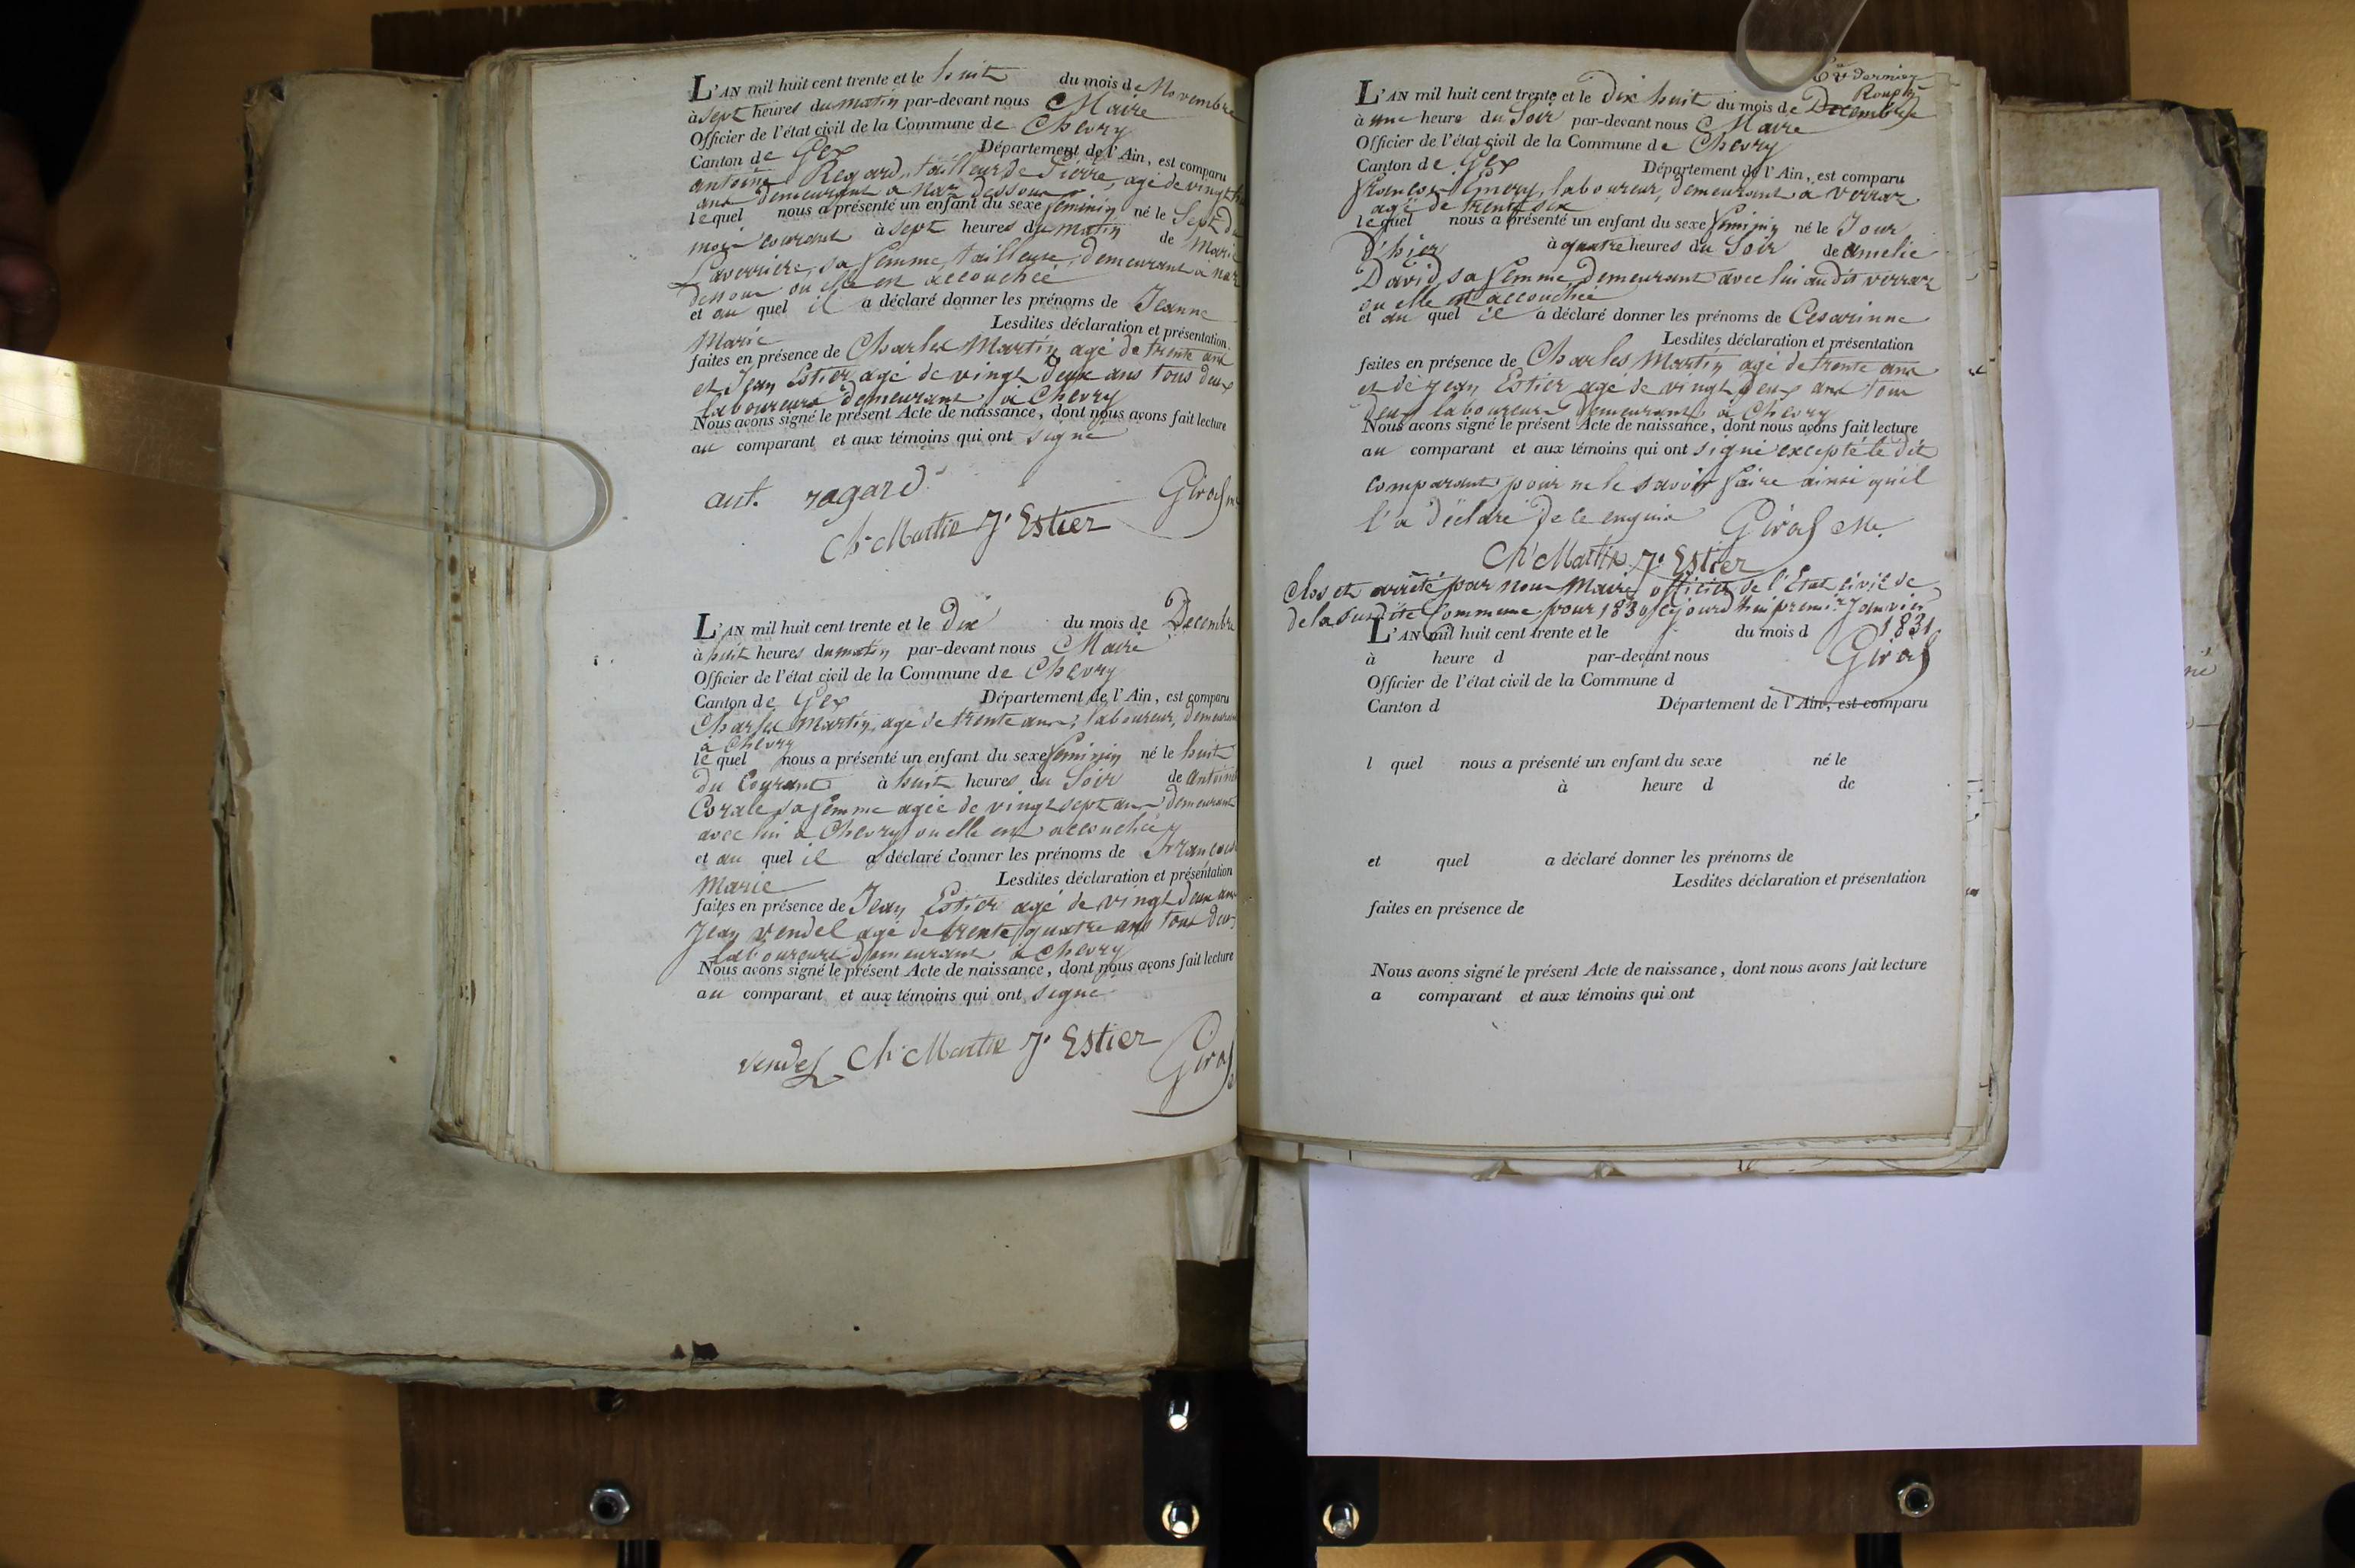 L'AN mil huit cent trente et le huit du mois de Novembre
à sept heures du matin par-devant nous Maire
Officier de l'état civil de la Commune de Chevry
Canton de Gex Département de l'Ain, est comparu
antoine Regard, tailleur de Pierre, agé de vingt
ans demeurant a Naz dessous
lequel nous a présenté un enfant du sexe feminin né le Sept du
mois courant à sept heures du matin de Marie
Laverriere, sa femme, tailleuse, demeurant à naz
dessous ou elle est accouchée
et au quel il a déclaré donner les prénoms de Jeanne
Marie Lesdites déclaration et présentation
faites en présence de Charles Martin agé de trente ans
et Jean Estier agé de vingt deux ans tous deux
laboureurs demeurant à Chevry
Nous avons signé le présent Acte de naissance, dont nous avons fait lecture
au comparant et aux témoins qui ont signé
ant. ragard
Ch Martin J. Estier Giraf
L'AN mil huit cent trente et le Dix du mois de Decembre
à huit heures du matin par-devant nous Maire
Officier de l'état civil de la Commune de Chevry
Canton de Gex Département de l'Ain, est comparu
Charles Martin, agé de trente ans, laboureur, demeurant
à Chevry
lequel nous a présenté un enfant du sexe feminin né le huit
du Courant à huit heures du Soir de Antoine
Corale sa femme agée de vingt sept ans demeurant
avec lui a Chevry ou elle est accouchée
et au quel il a déclaré donner les prénoms de Françoise
Marie Lesdites déclaration et présentation
faites en présence de Jean Estier agé de vingt deux ans
Jean Vendel agé de trente quatre ans tous deux
laboureurs demeurant à Chevry
Nous avons signé le présent Acte de naissance, dont nous avons fait lecture
au comparant et aux témoins qui ont signé
Vendel Ch Martin J. Estier Giraf
6 dernier
L'AN mil huit cent trente et le Dix huit du mois de Decembre
à une heure du Soir par-devant nous Maire
Officier de l'état civil de la Commune de Chevry
Canton de Gex Département de l'Ain, est comparu
François Emery, laboureur, demeurant à Verraz
agé de trente six
lequel nous a présenté un enfant du sexe feminin né le Jour
D'hier à quatre heures du Soir de Amelie
David, sa femme demeurant avec lui audit verraz
ou elle est accouchée
et au quel il a déclaré donner les prénoms de Cesarinne
Lesdites déclaration et présentation
faites en présence de Charles Martin agé de trente ans
et de Jean Estier agé de vingt deux ans tous
deux laboureurs demeurant à Chevry
Nous avons signé le présent Acte de naissance, dont nous avons fait lecture
au comparant et aux témoins qui ont signé excepté le dit
comparant pour ne le savoir faire ainsi qu'il
l'a déclaré de ce enquis Giraf Me.
Ch Martin J. Estier
Clos et arrêté par nous Maire officier de l'Etat civil de
de la susdite Commune pour 1830 cejourd'hui premier Janvier
1831
L'AN mil huit cent trente et le du mois d
Giraf
à heure d par-devant nous
Officier de l'état civil de la Commune d
Canton d Département de l'Ain, est comparu
l quel nous a présenté un enfant du sexe né le
à heure d de
et quel a déclaré donner les prénoms de
Lesdites déclaration et présentation
faites en présence de
Nous avons signé le présent Acte de naissance, dont nous avons fait lecture
a comparant et aux témoins qui ont